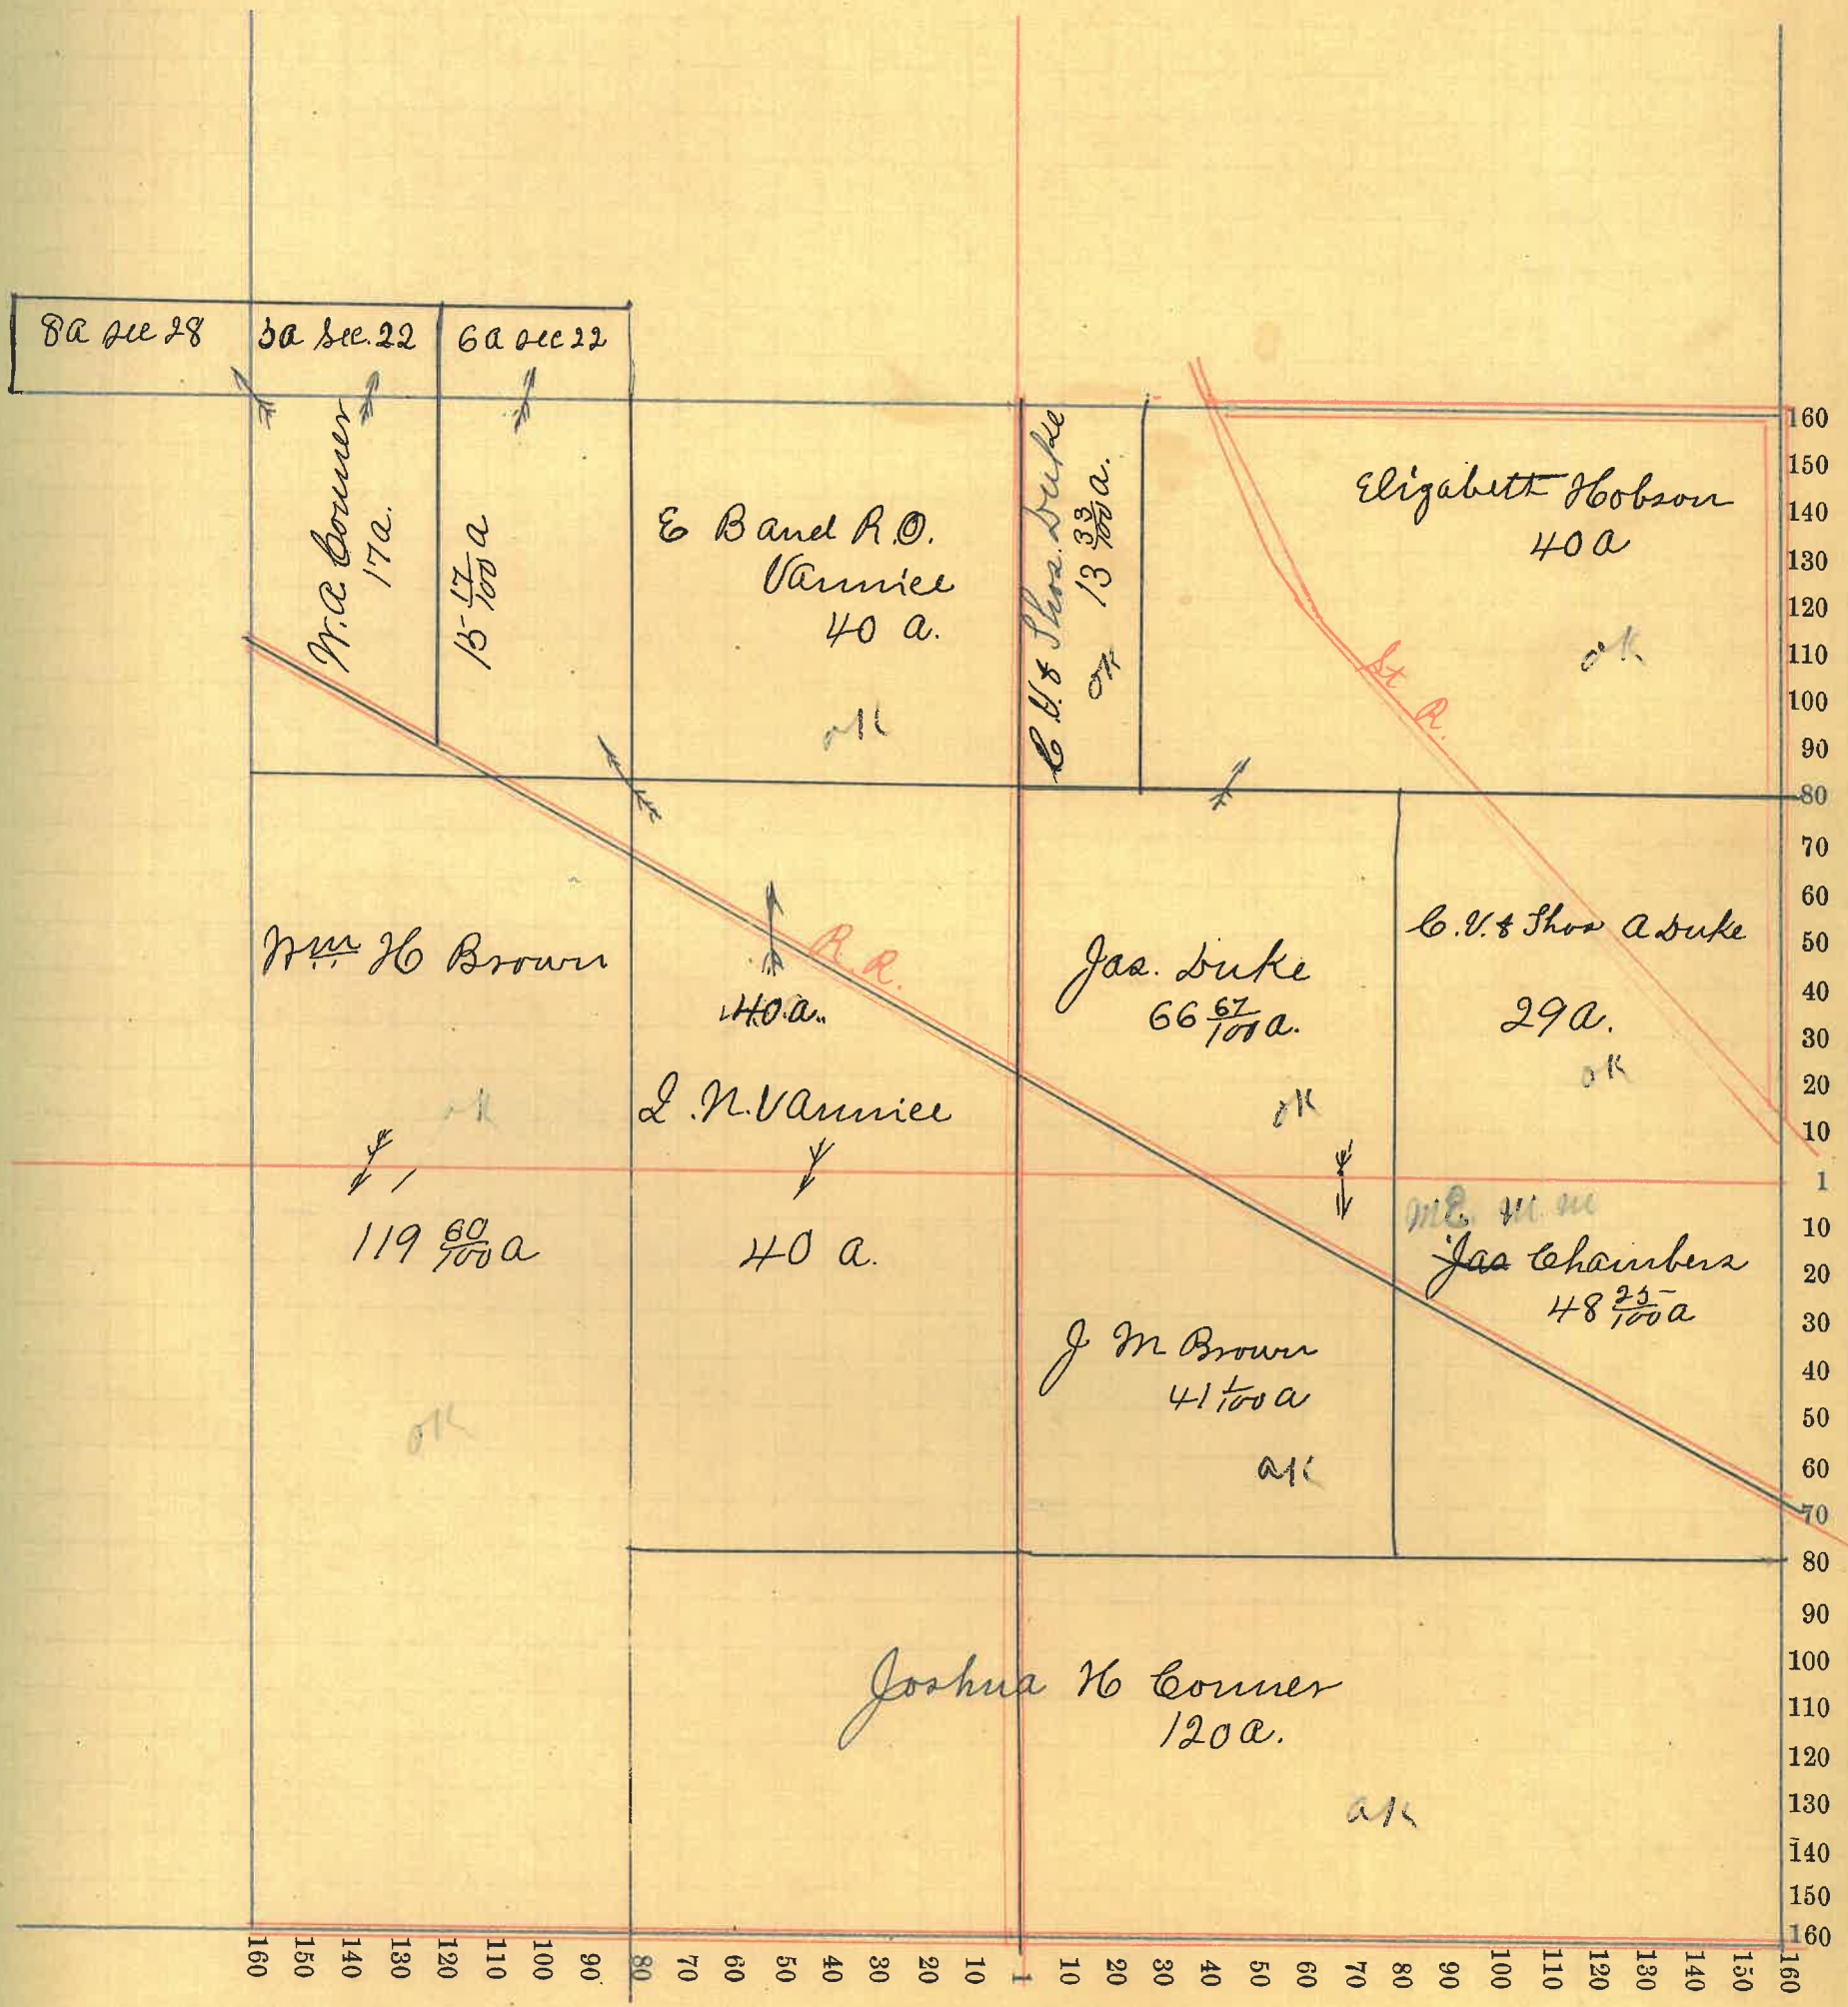 8a sec 28
5a Sec. 22
6a sec 22
W. A. Conner
17a.
15 17/100 a
E B and R. O.
Vannice
40 a.
ok
C. V. & Thos. Duke
13 33/100 a.
ok
Elizabeth Hobson
40 a
ok
St R.
Wm H Brown
ok
119 60/100 a
ok
R. R.
40 a.
I. N. Vannice
40 a.
Jas. Duke
66 67/100 a.
ok
C. V. & Thos A Duke
29 a.
ok
Jas Chambers
48 25/100 a
J M Brown
41 1/100 a
ok
Joshua H Conner
120 a.
ok
160
150
140
130
120
110
100
90
80
70
60
50
40
30
20
10
1
10
20
30
40
50
60
70
80
90
100
110
120
130
140
150
160
160 150 140 130 120 110 100 90 80 70 60 50 40 30 20 10 1 10 20 30 40 50 60 70 80 90 100 110 120 130 140 150 160